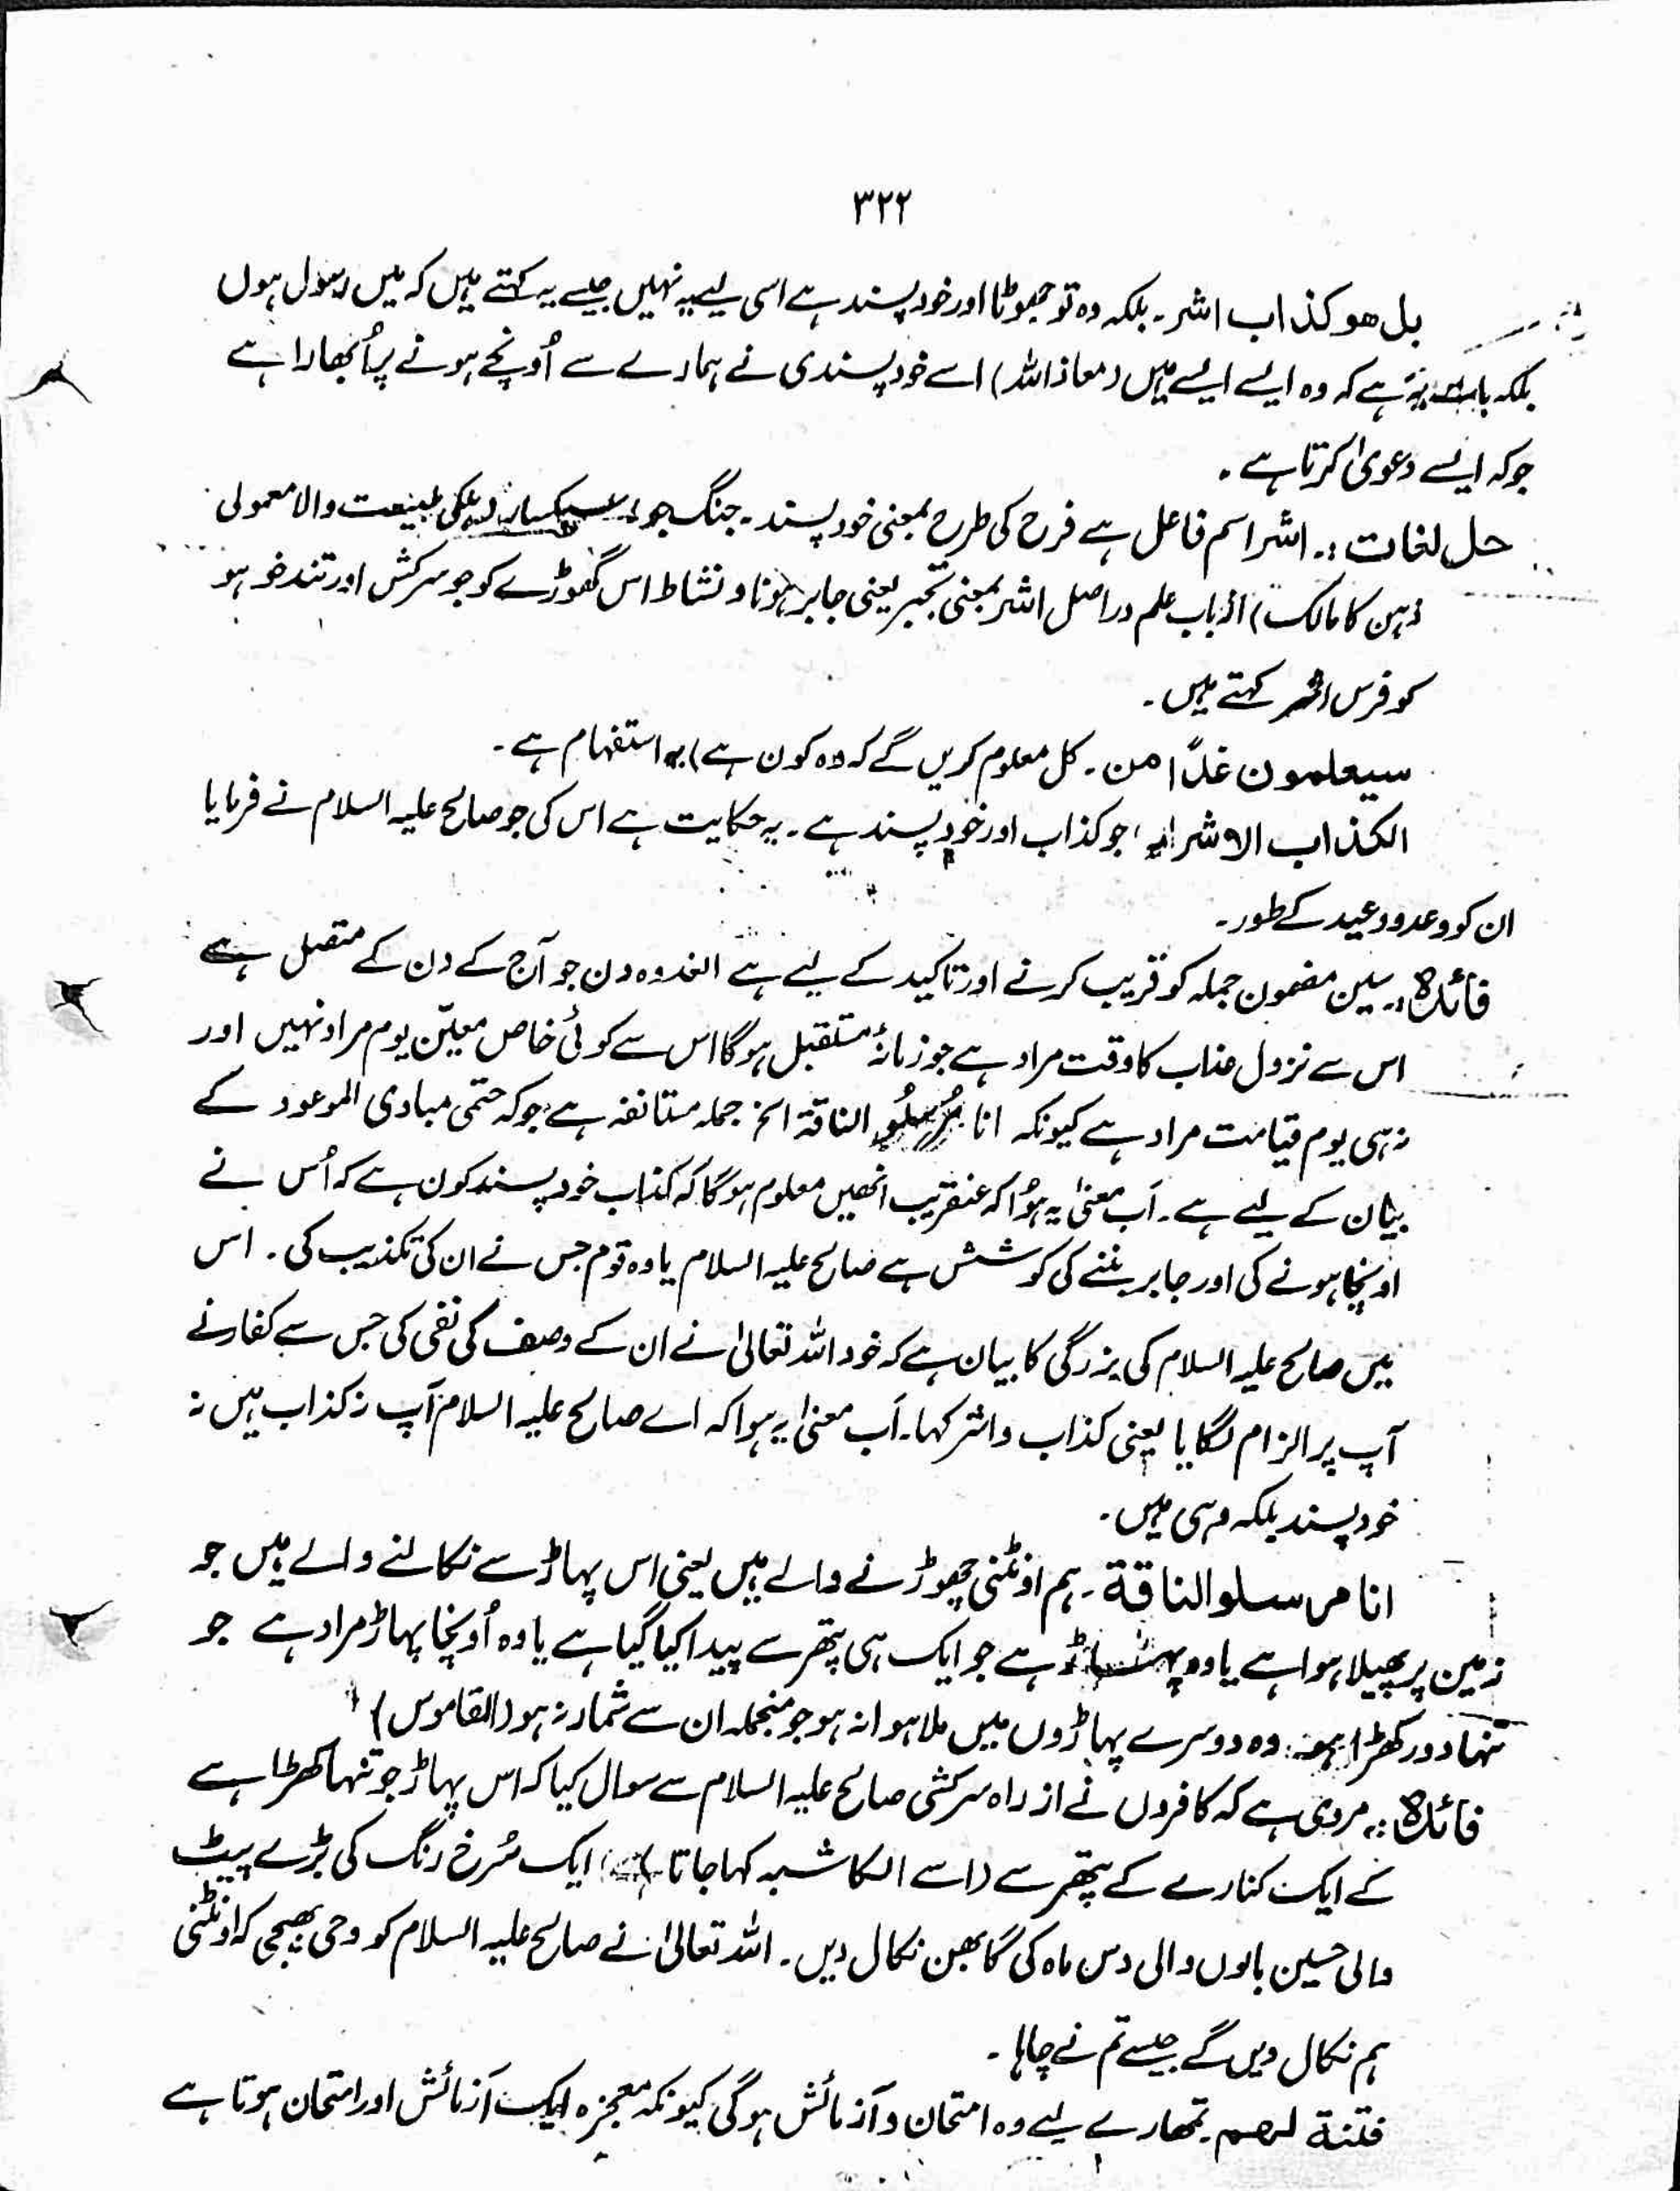 ۳۲۲
بل ھو کذاب اشر۔ بلکہ وہ تو جھوٹا اور خود پسند ہے اسی لیے یہ نہیں جیسے یہ کہتے ہیں کہ میں رسول ہوں
بلکہ بات یہ ہے کہ وہ ایسے ایسے ہیں (معاذ اللہ) اسے خود پسندی نے ہمارے سے اُونچے ہونے پر اُبھارا ہے
جو کہ ایسے دعویٰ کرتا ہے۔
حل لغات :۔ اشر اسم فاعل ہے فرح کی طرح بمعنی خود پسند۔ جنگ جو، سبکسار (ہلکی طبیعت والا معمولی
ذہن کا مالک) از باب علم دراصل اشر بمعنی تجبر یعنی جابر ہونا و نشاط اس گھوڑے کو جو سرکش اور تندخو ہو
کو فرس اشر کہتے ہیں۔
سیعلمون غدًا من۔ کل معلوم کریں گے کہ وہ کون ہے) یہ استفہام ہے۔
الکذاب الاشر جو کذاب اور خود پسند ہے۔ یہ حکایت ہے اس کی جو صالح علیہ السلام نے فرمایا
ان کو وعدہ وعید کے طور۔
فائدہ:۔ سین مضمون جملہ کو قریب کرنے اور تاکید کے لیے ہے الغد وہ دن جو آج کے دن کے متصل ہے
اس سے نزول عذاب کا وقت مراد ہے جو زمانۂ مستقبل ہو گا اس سے کوئی خاص معیّن یوم مراد نہیں اور
نہ ہی یوم قیامت مراد ہے کیونکہ انا مُرسِلُو الناقۃ الخ جملہ مستانفہ ہے جو کہ حتمی مبادی الموعود کے
بیان کے لیے ہے۔ اَب معنیٰ یہ ہُوا کہ عنقریب انھیں معلوم ہو گا کہ کذاب خود پسند کون ہے کہ اُس نے
اونچا ہونے کی اور جابر بننے کی کوشش ہے صالح علیہ السلام یا وہ قوم جس نے ان کی تکذیب کی۔ اس
میں صالح علیہ السلام کی بزرگی کا بیان ہے کہ خود اللہ تعالیٰ نے ان کے وصف کی نفی کی جس سے کفار نے
آپ پر الزام لگایا یعنی کذاب و اشر کہا۔ اَب معنیٰ یہ ہوا کہ اے صالح علیہ السلام آپ نہ کذاب ہیں نہ
خود پسند بلکہ وہی ہیں۔
انا مرسلو الناقۃ۔ ہم اونٹنی چھوڑنے والے ہیں یعنی اس پہاڑ سے نکالنے والے ہیں جو
زمین پر پھیلا ہوا ہے یا وہ پہاڑ ہے جو ایک ہی پتھر سے پیدا کیا گیا ہے یا وہ اُونچا پہاڑ مراد ہے جو
تنہا دور کھڑا ہو۔ وہ دوسرے پہاڑوں میں ملا ہوا نہ ہو جو منجملہ ان سے شمار نہ ہو (القاموس)
فائدہ:۔ مروی ہے کہ کافروں نے از راہ سرکشی صالح علیہ السلام سے سوال کیا کہ اس پہاڑ جو تنہا کھڑا ہے
کے ایک کنارے کے پتھر سے (اسے الکاشبہ کہا جاتا ہے) ایک سُرخ رنگ کی بڑے پیٹ
والی حسین بالوں والی دس ماہ کی گابھن نکال دیں۔ اللہ تعالیٰ نے صالح علیہ السلام کو وحی بھیجی کہ اونٹنی
ہم نکال دیں گے جیسے تم نے چاہا۔
فتنۃ لھم۔ تمھارے لیے وہ امتحان و آزمائش ہو گی کیونکہ معجزہ ایک آزمائش اور امتحان ہوتا ہے